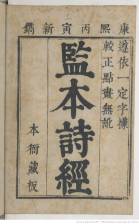 康熙丙寅新鐫
遵依一定字樣
較正點畫無訛
監本詩經
本衙藏板